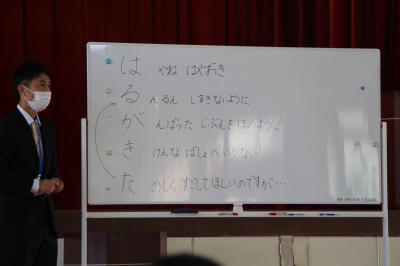 は やね はやおき
る んるん しすぎないように
が んばった じぶんをほめよう!
き けんな ばしょへいかない
た のしく すごしてほしいのですが…